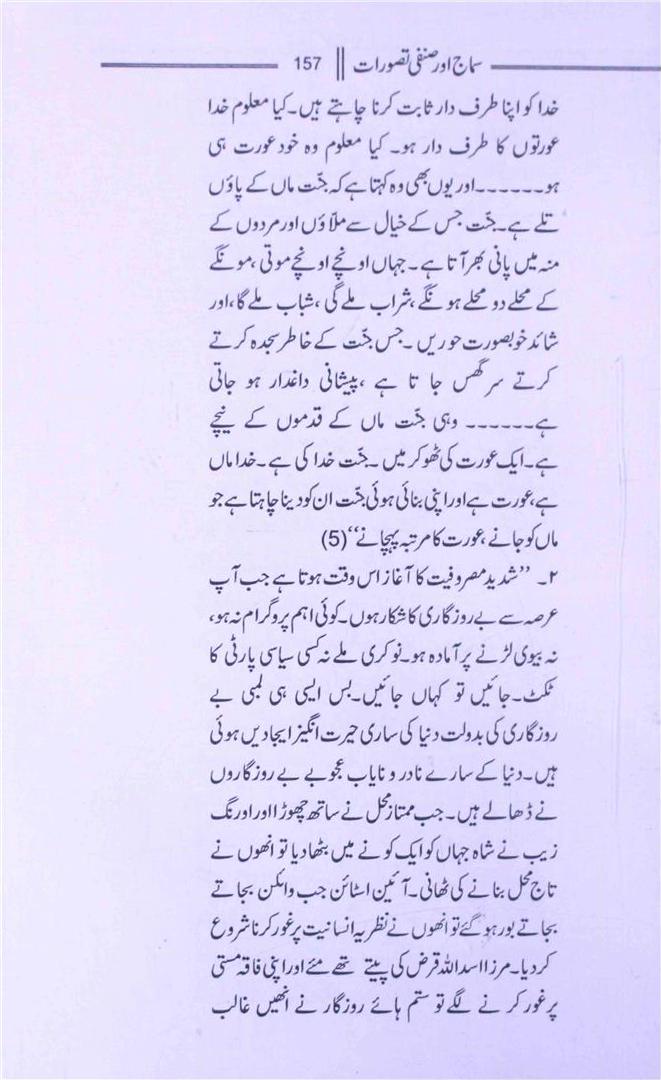 سماج اور صنفی تصورات || 157
خدا کو اپنا طرف دار ثابت کرنا چاہتے ہیں۔ کیا معلوم خدا
عورتوں کا طرف دار ہو۔ کیا معلوم وہ خود عورت ہی
ہو۔۔۔۔۔۔ اور یوں بھی وہ کہتا ہے کہ جنّت ماں کے پاؤں
تلے ہے۔ جنّت جس کے خیال سے ملاّؤں اور مردوں کے
منہ میں پانی بھر آتا ہے۔ جہاں اونچے اونچے موتی، مونگے
کے محلے دو محلے ہونگے، شراب ملے گی، شباب ملے گا، اور
شائد خوبصورت حوریں۔ جس جنّت کے خاطر سجدہ کرتے
کرتے سر گھس جا تا ہے، پیشانی داغدار ہو جاتی
ہے۔۔۔۔۔۔ وہی جنّت ماں کے قدموں کے نیچے
ہے۔ ایک عورت کی ٹھوکر میں۔ جنّت خدا کی ہے۔ خدا ماں
ہے، عورت ہے اور اپنی بنائی ہوئی جنّت ان کو دینا چاہتا ہے جو
ماں کو جانے، عورت کا مرتبہ پہچانے‘‘(5)
۲۔ ’’شدید مصروفیت کا آغاز اس وقت ہوتا ہے جب آپ
عرصہ سے بے روزگاری کا شکار ہوں۔ کوئی اہم پروگرام نہ ہو،
نہ بیوی لڑنے پر آمادہ ہو۔ نوکری ملے نہ کسی سیاسی پارٹی کا
ٹکٹ۔ جائیں تو کہاں جائیں۔ بس ایسی ہی لمبی بے
روزگاری کی بدولت دنیا کی ساری حیرت انگیز ایجادیں ہوئی
ہیں۔ دنیا کے سارے نادر و نایاب عجوبے بے روزگاروں
نے ڈھالے ہیں۔ جب ممتاز محل نے ساتھ چھوڑا اور اورنگ
زیب نے شاہ جہاں کو ایک کونے میں بٹھا دیا تو انھوں نے
تاج محل بنانے کی ٹھانی۔ آئین اسٹائن جب وائلن بجاتے
بجاتے بور ہو گئے تو انھوں نے نظریہ انسانیت پر غور کرنا شروع
کر دیا۔ مرزا اسد اللہ قرض کی پیتے تھے مئے اور اپنی فاقہ مستی
پر غور کر نے لگے تو ستم ہائے روزگار نے انھیں غالب